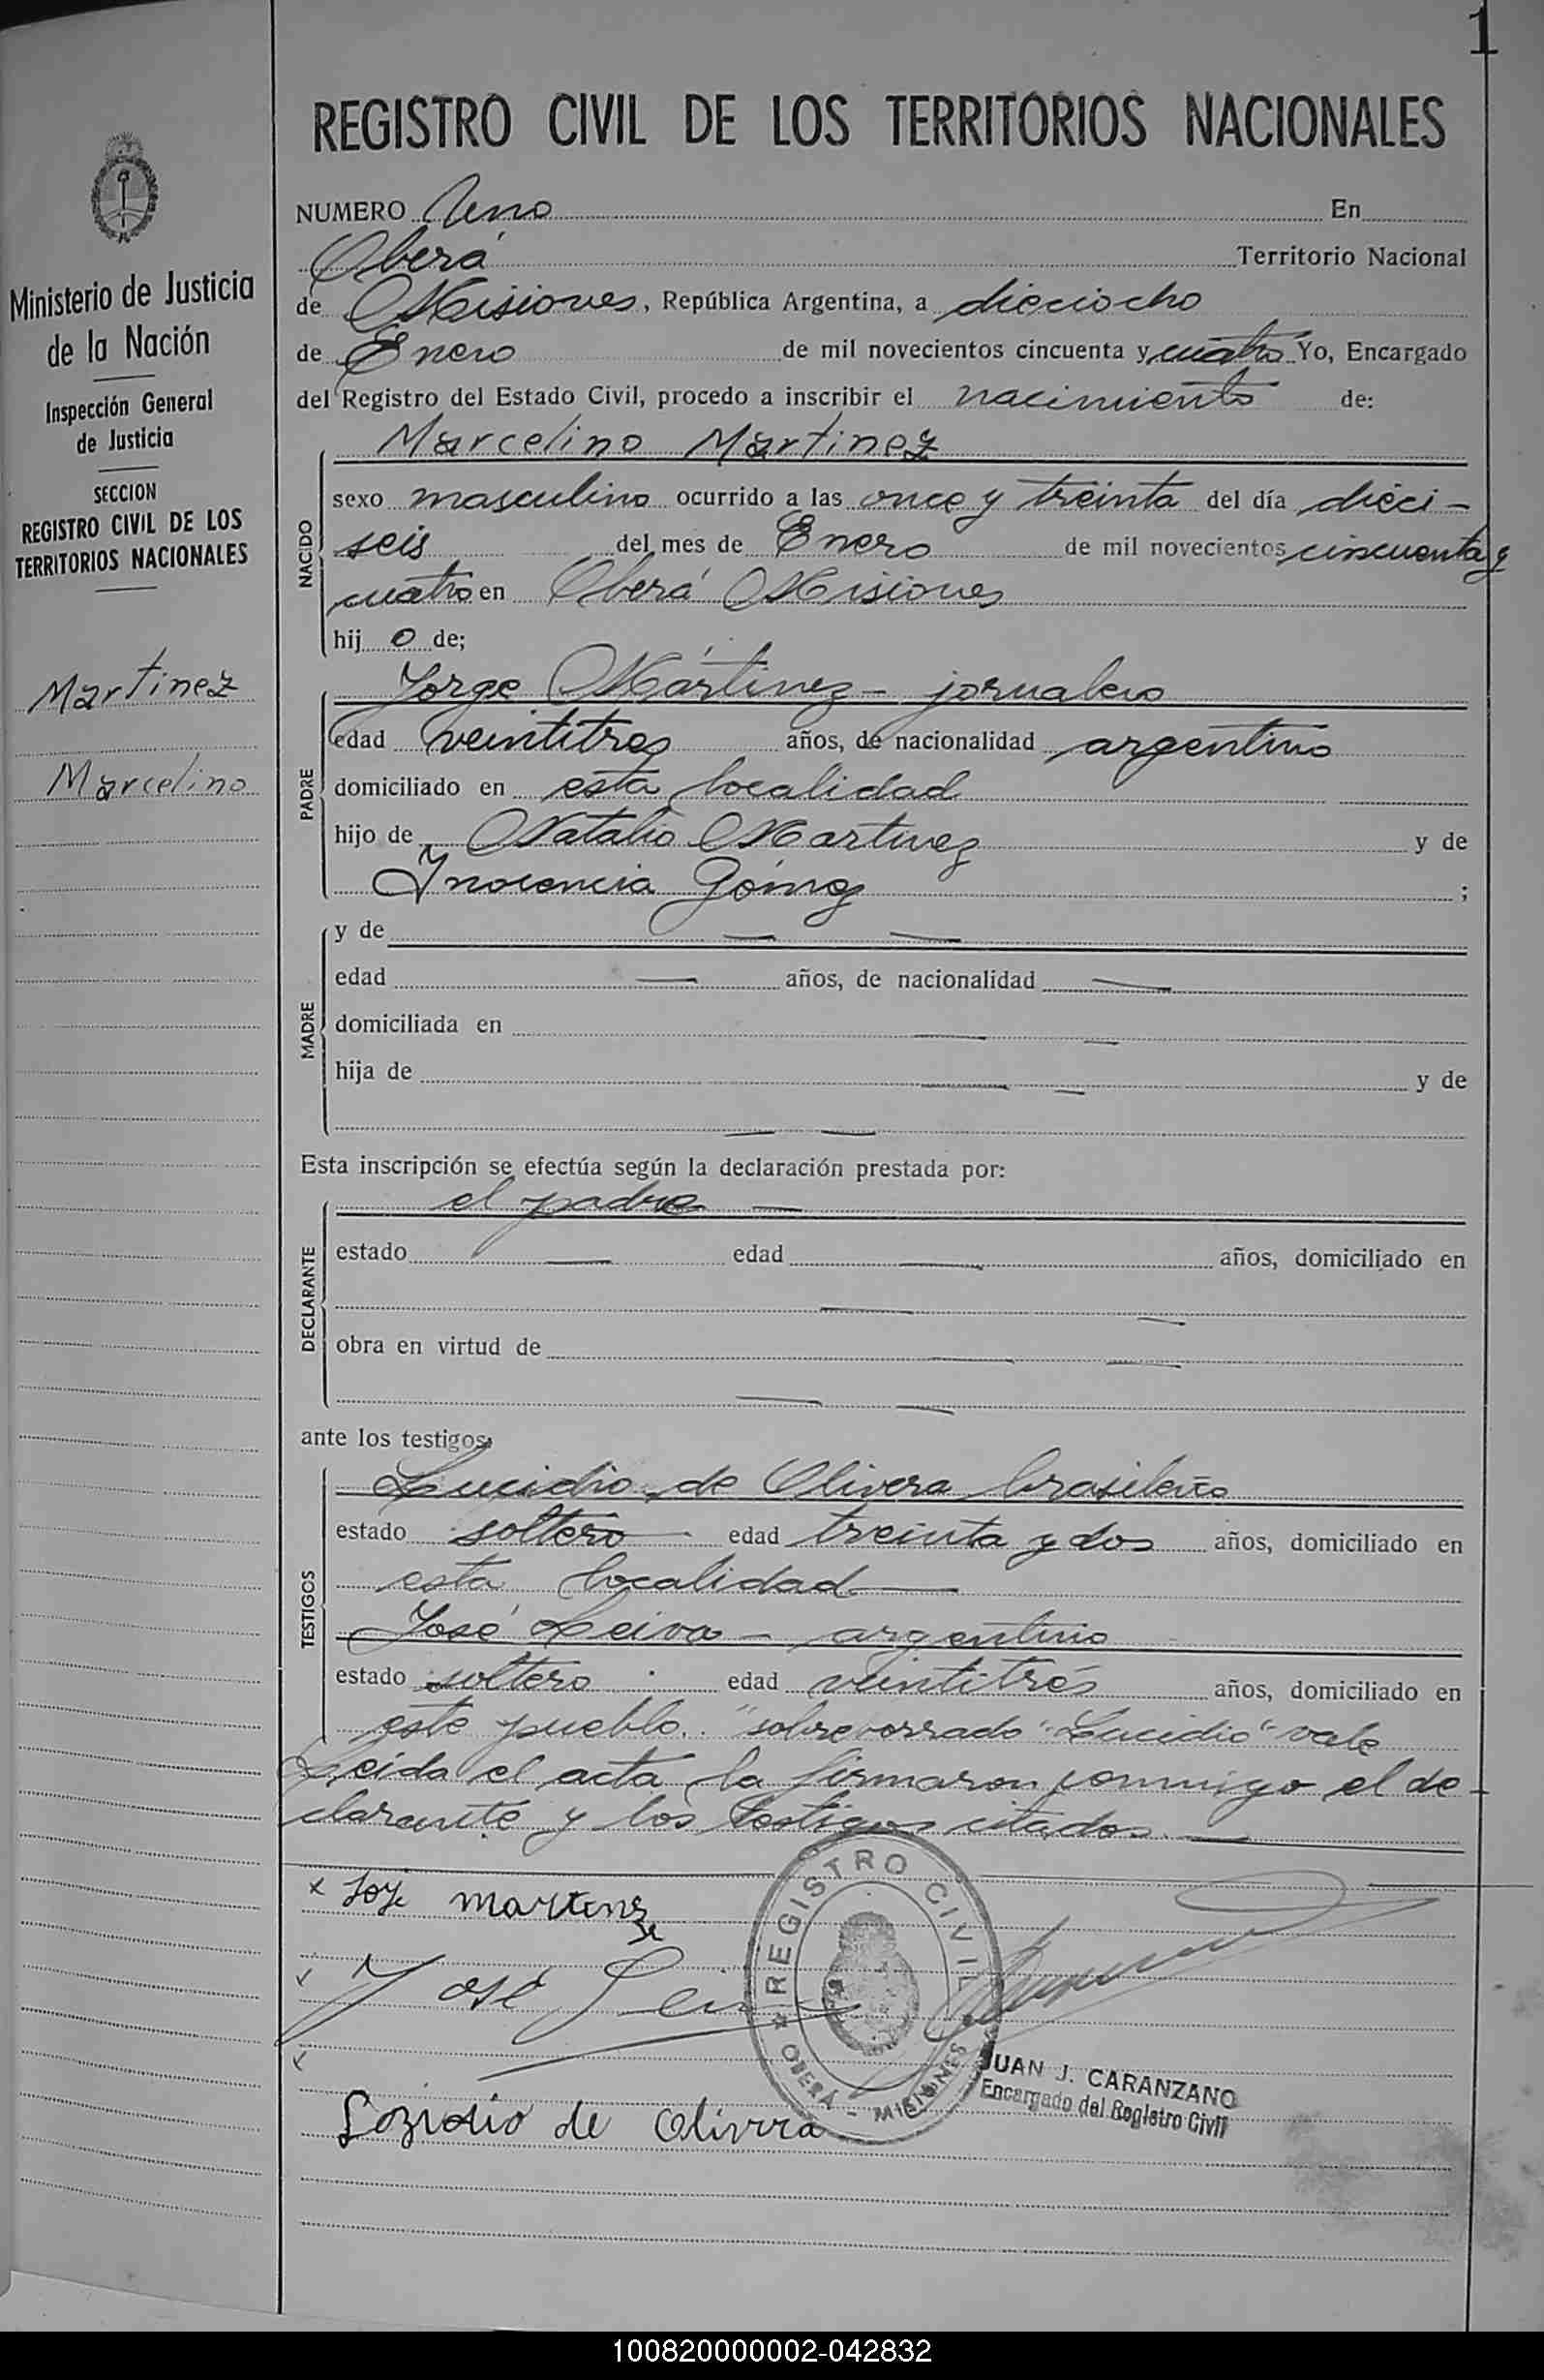 1
REGISTRO CIVIL DE LOS TERRITORIOS NACIONALES
Ministerio de Justicia
de la Nación
Inspección General
de Justicia
SECCION
REGISTRO CIVIL DE LOS
TERRITORIOS NACIONALES
Martinez
Marcelino
NUMERO Uno En
Oberá Territorio Nacional
de Misiones, República Argentina, a dieciocho
de Enero de mil novecientos cincuenta y cuatro Yo, Encargado
del Registro del Estado Civil, procedo a inscribir el nacimiento de:
NACIDO
Marcelino Martinez
sexo masculino ocurrido a las once y treinta del día dieci-
seis del mes de Enero de mil novecientos cincuenta y
cuatro en Oberá Misiones
hij o de;
PADRE
Jorge Martinez - jornalero
edad veintitres años, de nacionalidad argentino
domiciliado en esta localidad
hijo de Natalio Martinez y de
Inocencia Gómez ;
MADRE
y de — —
edad — años, de nacionalidad —
domiciliada en — —
hija de — — y de
— —
Esta inscripción se efectúa según la declaración prestada por:
DECLARANTE
el padre —
estado — edad — años, domiciliado en
— —
obra en virtud de — —
— —
ante los testigos,
TESTIGOS
Lucidio de Olivera brasileño
estado soltero edad treinta y dos años, domiciliado en
esta localidad —
José Leiva - argentino
estado soltero edad veintitrés años, domiciliado en
este pueblo. "sobreborrado" "Lucidio" vale
Leida el acta la firmaron conmigo el de-
clarante y los testigos citados. —
x Martens
José Leiva
Lozidio de Olivera
REGISTRO CIVIL
OBERÁ - MISIONES
JUAN J. CARANZANO
Encargado del Registro Civil
100820000002-042832